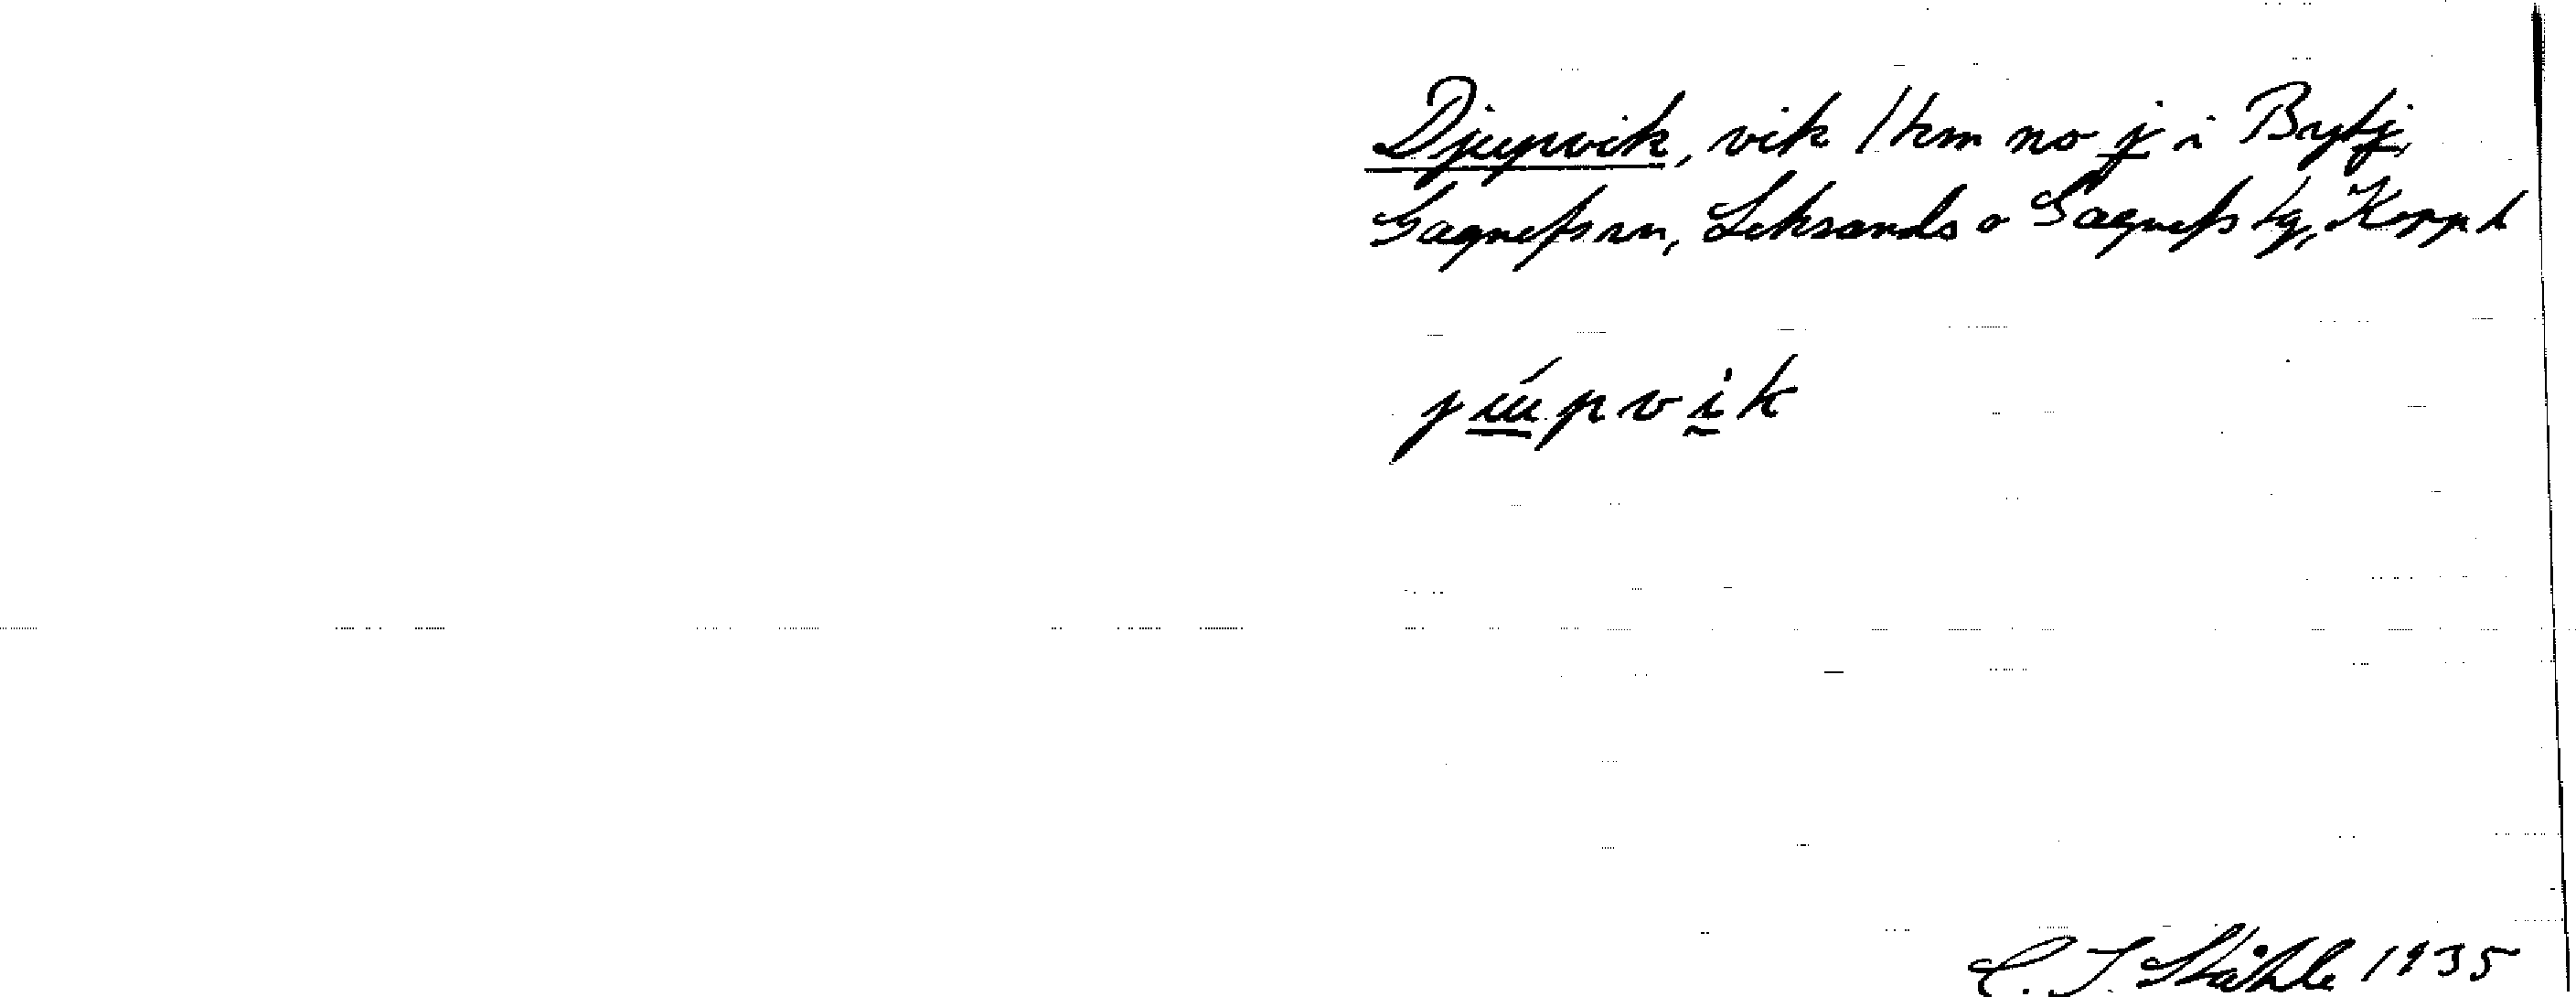 Djupvik, vik 1 km no j i Bysj,
Gagnefs sn, Leksands o Gagnefs tg, Kopp l
júpvik
C. I. Ståhle 1935